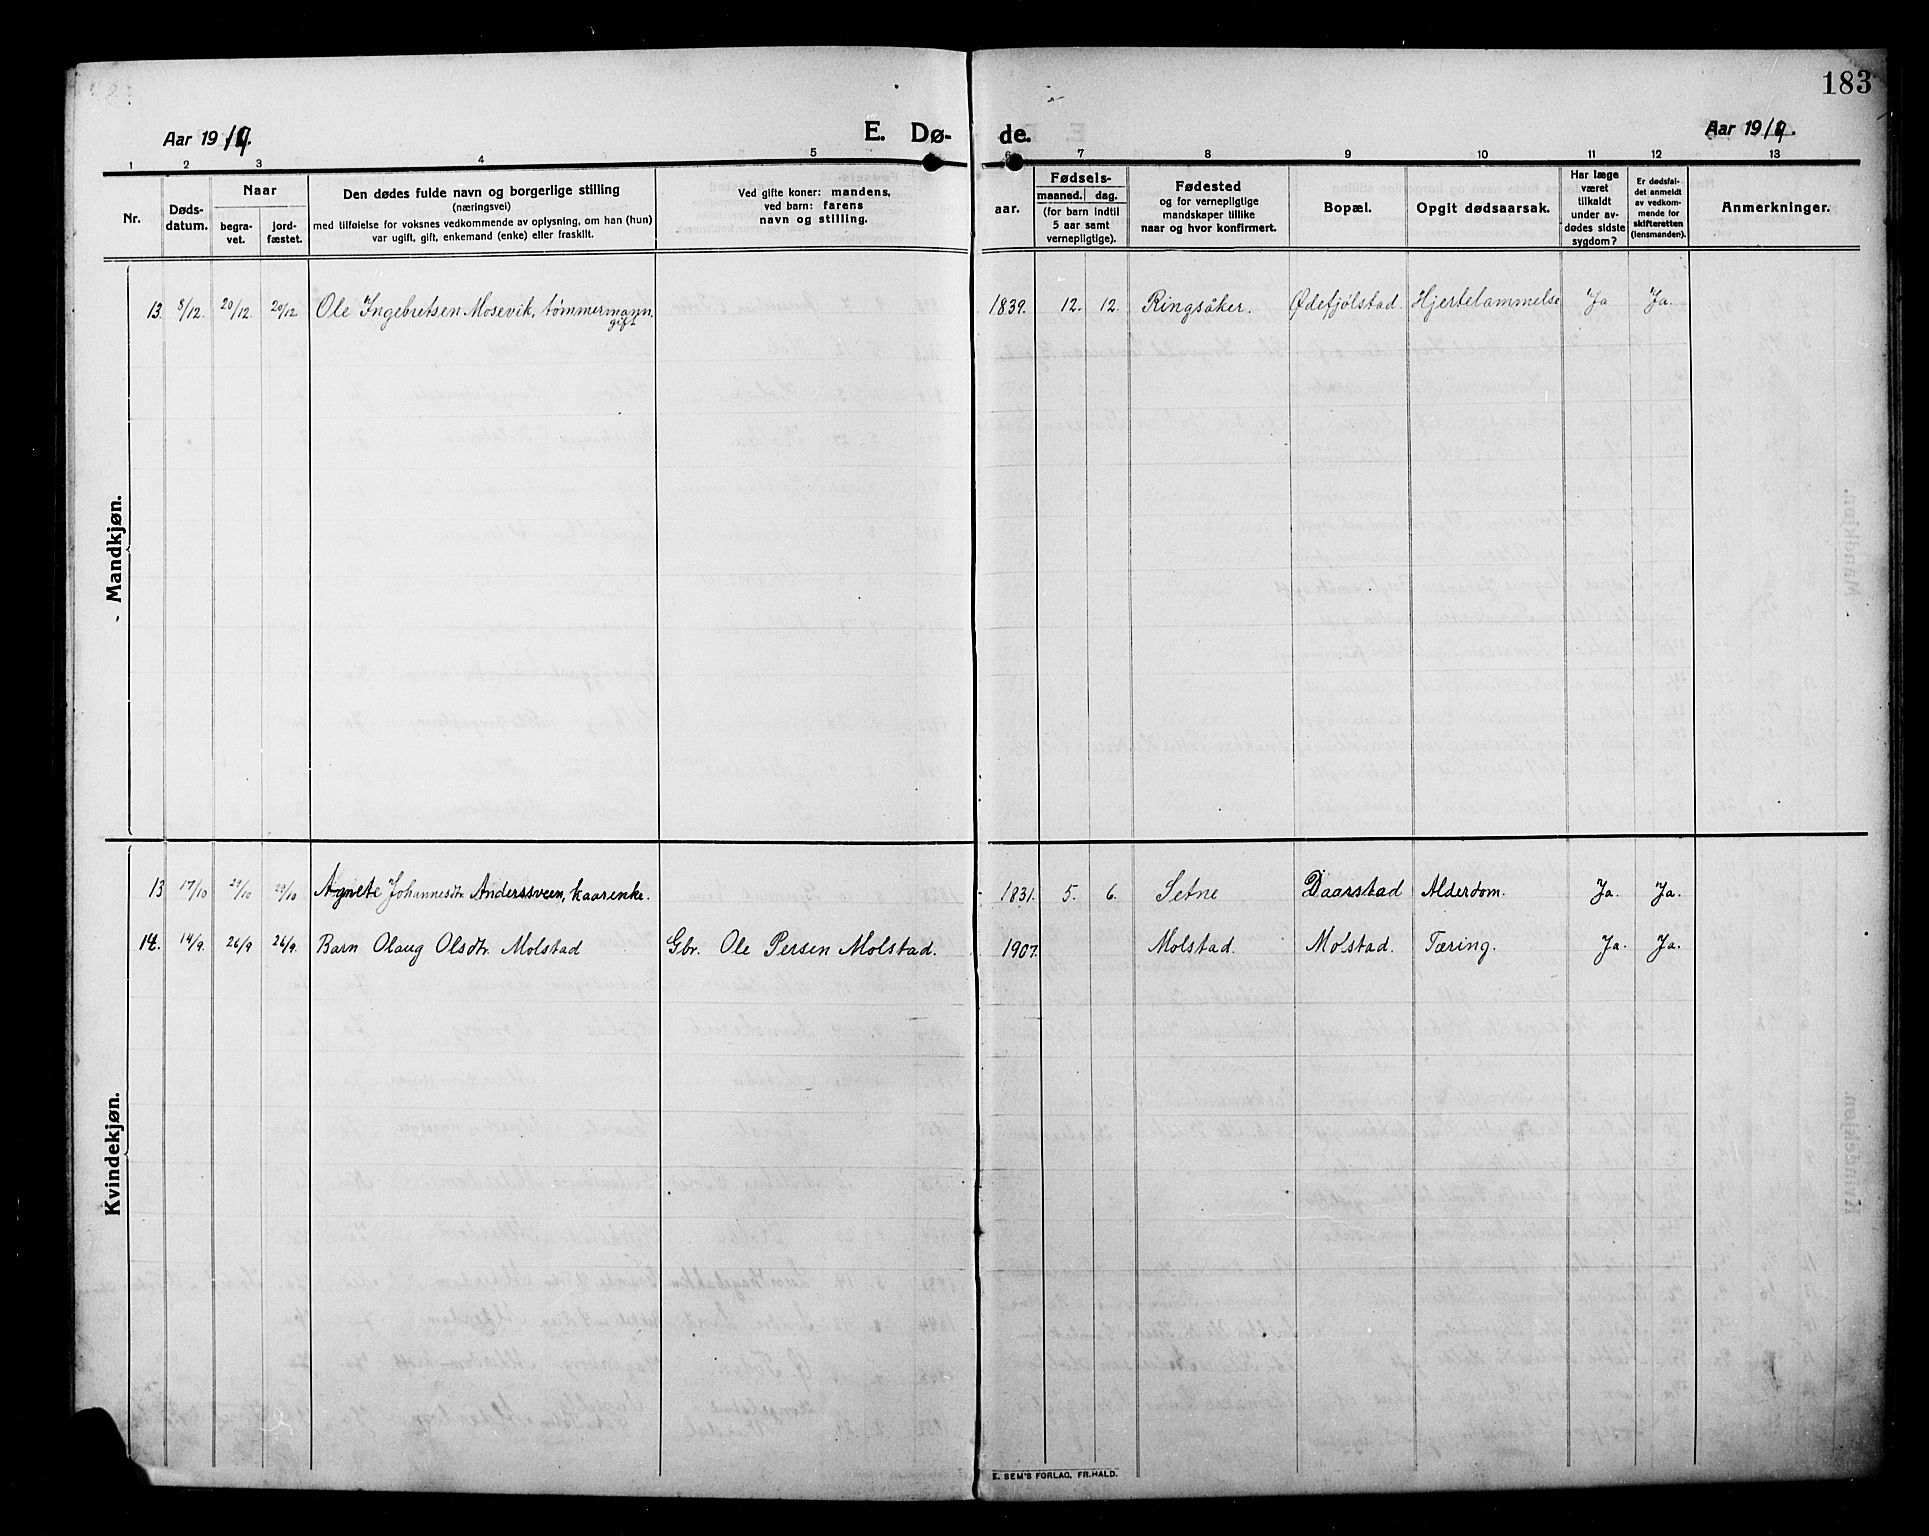 183
Aar 1919.
E. Dø-
de.
Aar 1919.
1 2 3 4 5 6 7 8 9 10 11 12 13
Nr.
Døds-
datum.
Naar
begra-
vet.
jord-
fæstet.
Den dødes fulde navn og borgerlige stilling
(næringsvei)
med tilføielse for voksnes vedkommende av oplysning, om han (hun)
var ugift, gift, enkemand (enke) eller fraskilt.
Ved gifte koner: mandens,
ved barn: farens
navn og stilling.
aar.
Fødsels-
maaned. dag.
(for barn indtil
5 aar samt
vernepligtige).
Fødested
og for vernepligtige
mandskaper tillike
naar og hvor konfirmert.
Bopæl.
Opgit dødsaarsak.
Har læge
været
tilkaldt
under av-
dødes sidste
sygdom?
Er dødsfal-
det anmeldt
av vedkom-
mende for
skifteretten
(lensmanden).
Anmerkninger.
Mandkjøn.
13. 8/12. 20/12. 20/12 Ole Ingebretsen Mosevik, tømmermann. 1839. 12. 12. Ringsåker. Ødefjølstad. Hjertelammelse Ja Ja.
gift
Kvindekjøn.
13 17/10 29/10 29/10 Agnete Johannesdtr Anderssveen, kaarenke. 1831. 5. 6. Setne Daarstad Alderdom. Ja. Ja.
14. 14/9. 26/9 26/9. Barn Olaug Olsdtr. Molstad Gbr. Ole Persen Molstad. 1907. Molstad. Molstad. Tæring. Ja. Ja.
E. SEM'S FORLAG, FR.HALD.